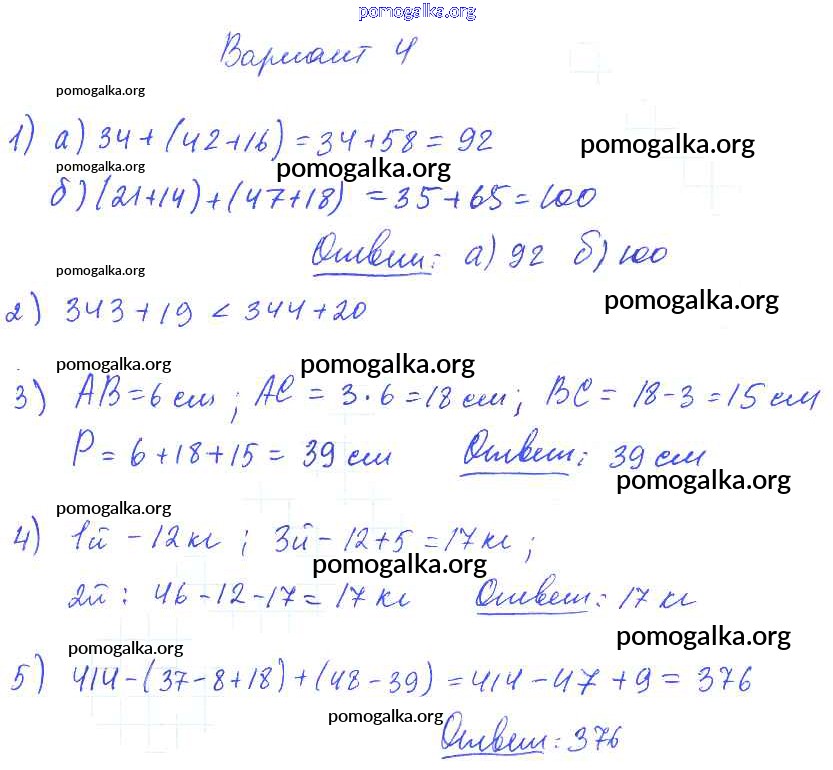 pomogalka.org
Вариант 4
pomogalka.org
1) а) 34 + (42+16) = 34+58 = 92
pomogalka.org
pomogalka.org
pomogalka.org
б) (21+14) + (47+18) = 35+65 = 100
Ответ: а) 92 б) 100
pomogalka.org
pomogalka.org
2) 343 + 19 < 344+20
pomogalka.org
pomogalka.org
3) AB = 6 см ; AC = 3·6 = 18 см ; BC = 18-3 = 15 см
P = 6+18+15 = 39 см Ответ: 39 см
pomogalka.org
pomogalka.org
4) 1й - 12 кг ; 3й - 12+5 = 17 кг ;
pomogalka.org
2й : 46 - 12 - 17 = 17 кг Ответ: 17 кг
pomogalka.org
pomogalka.org
5) 414 - (37-8+18) + (48-39) = 414 - 47 + 9 = 376
pomogalka.org
Ответ: 376